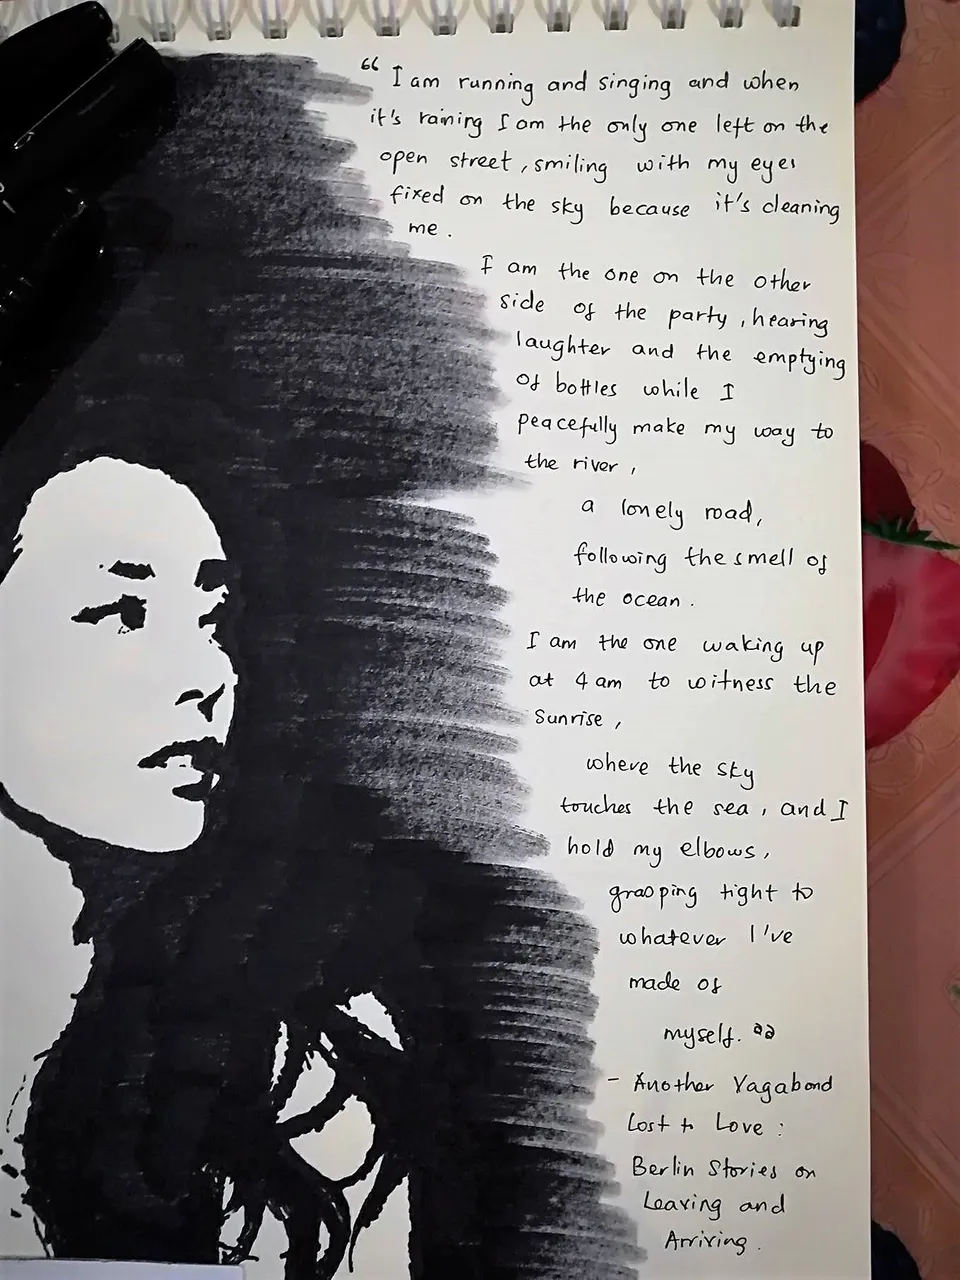 “ I am running and singing and when
it's raining I am the only one left on the
open street, smiling with my eyes
fixed on the sky because it's cleaning
me.
I am the one on the other
side of the party, hearing
laughter and the emptying
of bottles while I
peacefully make my way to
the river,
a lonely road,
following the smell of
the ocean.
I am the one waking up
at 4 am to witness the
Sunrise,
where the sky
touches the sea, and I
hold my elbows,
grasping tight to
whatever I've
made of
myself. ”
- Another Vagabond
Lost to Love :
Berlin Stories on
Leaving and
Arriving.